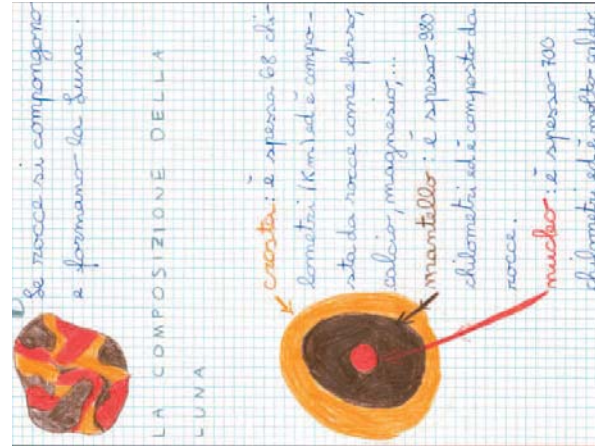 Le rocce si compongono
e formano la Luna.
LA COMPOSIZIONE DELLA
LUNA
crosta: è spessa 68 chi-
lometri (Km) ed è compo-
sta da rocce come ferro,
calcio, magnesio,...
mantello: è spesso 980
chilometri ed è composto da
rocce.
nucleo: è spesso 700
chilometri ed è molto caldo